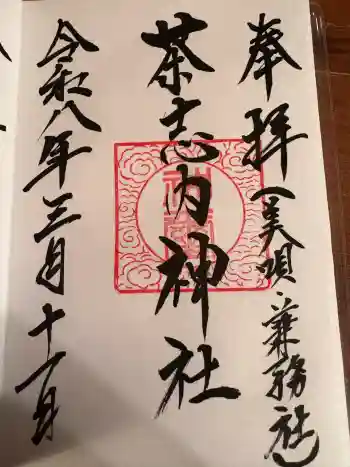 奉拝（美唄・兼務社）
茶志内神社
令和八年三月十一日